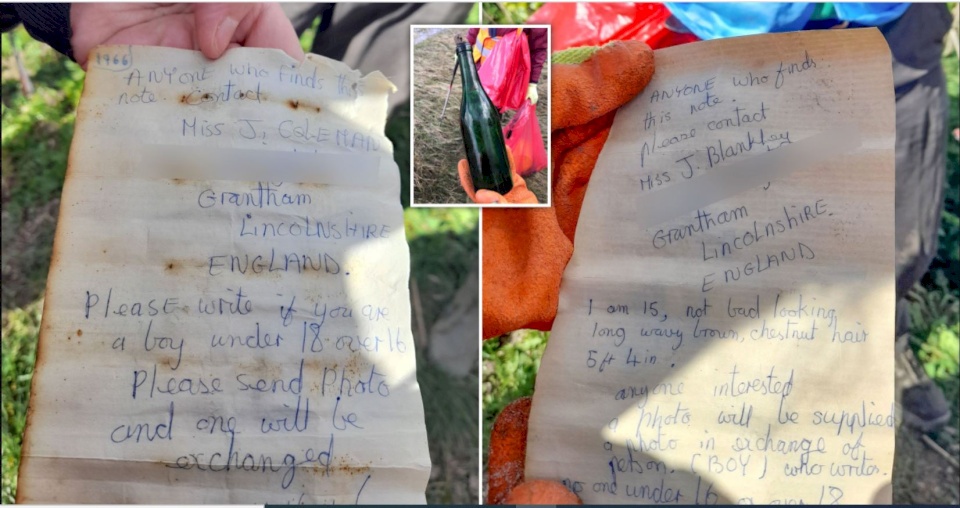 1966
ANYONE who finds this
note. Contact
Miss J. COLEMAN
Grantham
LINCOLNSHIRE
ENGLAND.
Please write if you are
a boy under 18 over 16
Please send Photo
and one will be
exchanged
ANYONE who finds
this note.
please contact
Miss J. Blankley
Grantham
LINCOLNSHIRE.
ENGLAND
I am 15, not bad looking
long wavy brown, chestnut hair
5ft 4in.
anyone interested
a photo will be supplied
a photo in exchange of
person. (BOY) who writes.
no one under 16 or over 18